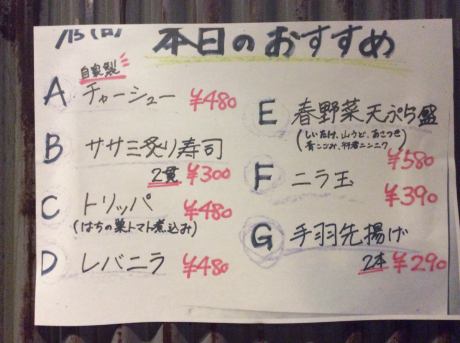 本日のおすすめ
自家製
A チャーシュー ¥480
B ササミ炙り寿司
2貫 ¥300
C トリッパ ¥480
(はちの巣トマト煮込み)
D レバニラ ¥480
E 春野菜天ぷら盛
(しいたけ、山うど、あこつき
青こごみ、行者ニンニク)
¥580
F ニラ玉 ¥390
G 手羽先揚げ
2本 ¥290